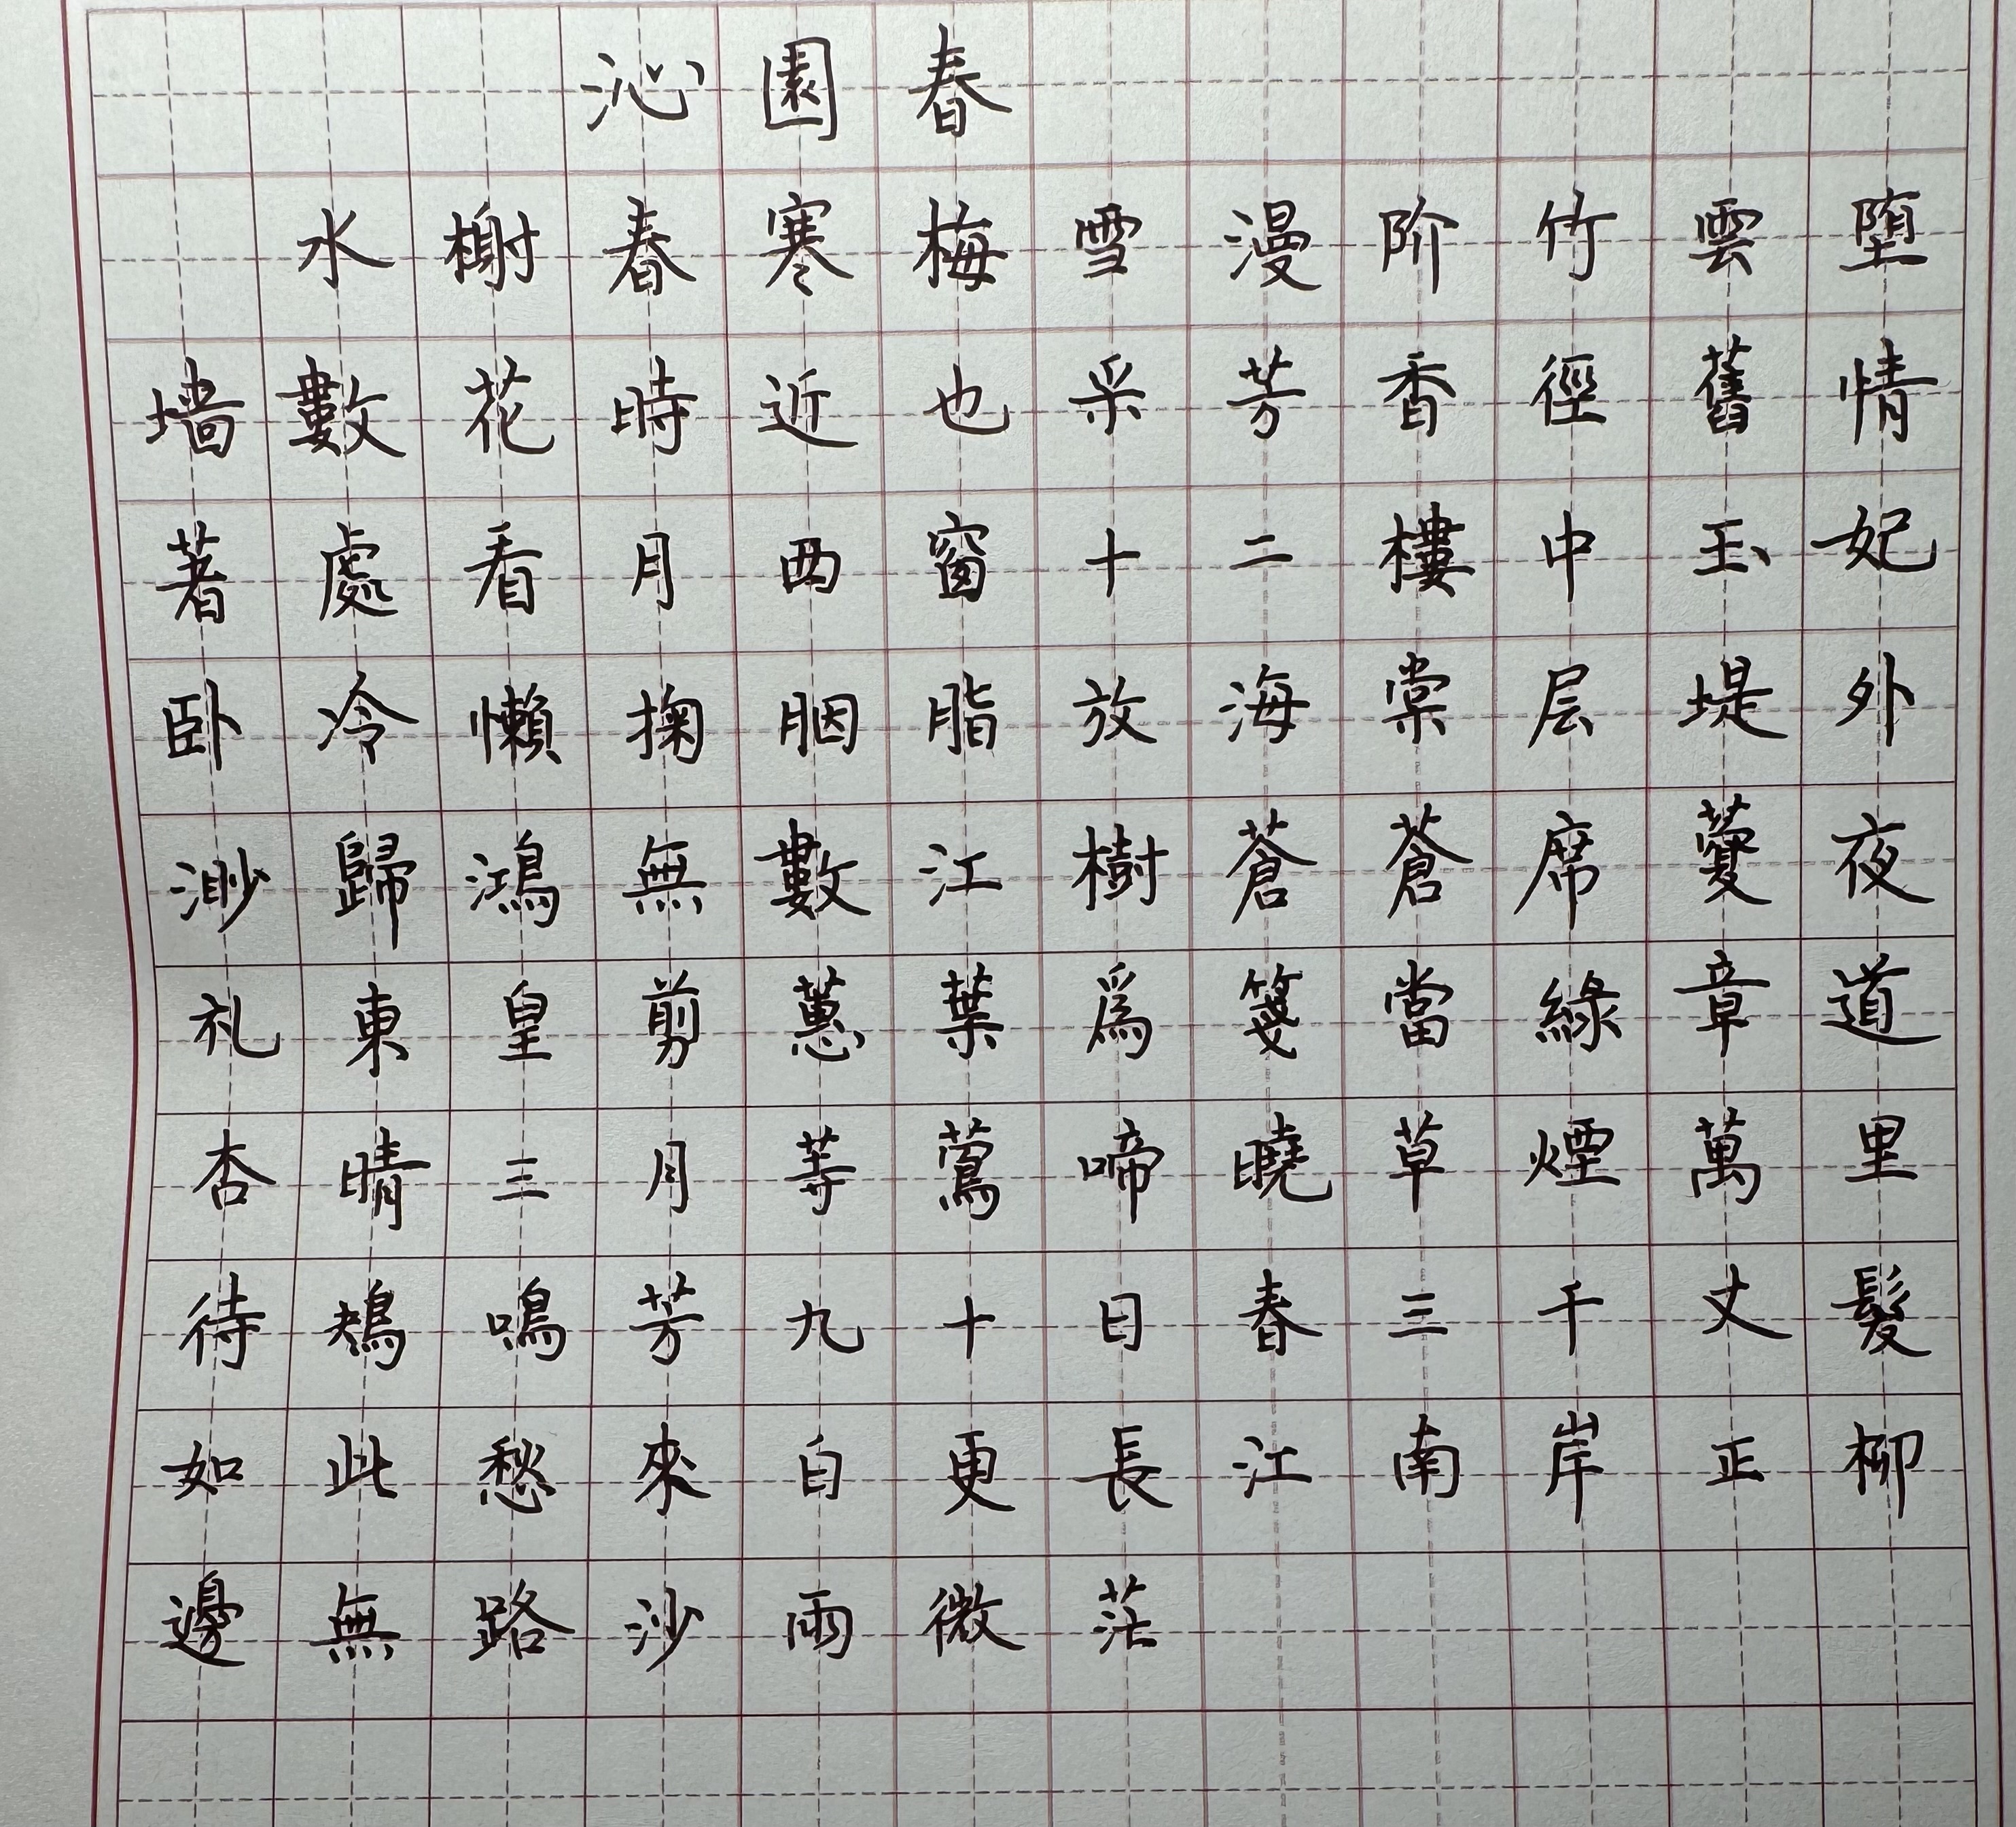 沁園春
水榭春寒梅雪漫阶竹雲堕
墙數花時近也采芳香徑舊情
著處看月西窗十二樓中玉妃
卧冷懶掬胭脂放海棠层堤外
渺歸鴻無數江樹蒼蒼席夜
札東皇剪蕙葉爲箋當綠章道
杏晴三月䓁鶯啼曉草煙萬里
待鴂鳴芳九十日春三千丈髮
如此愁來白更長江南岸正柳
邊無路沙雨微茫